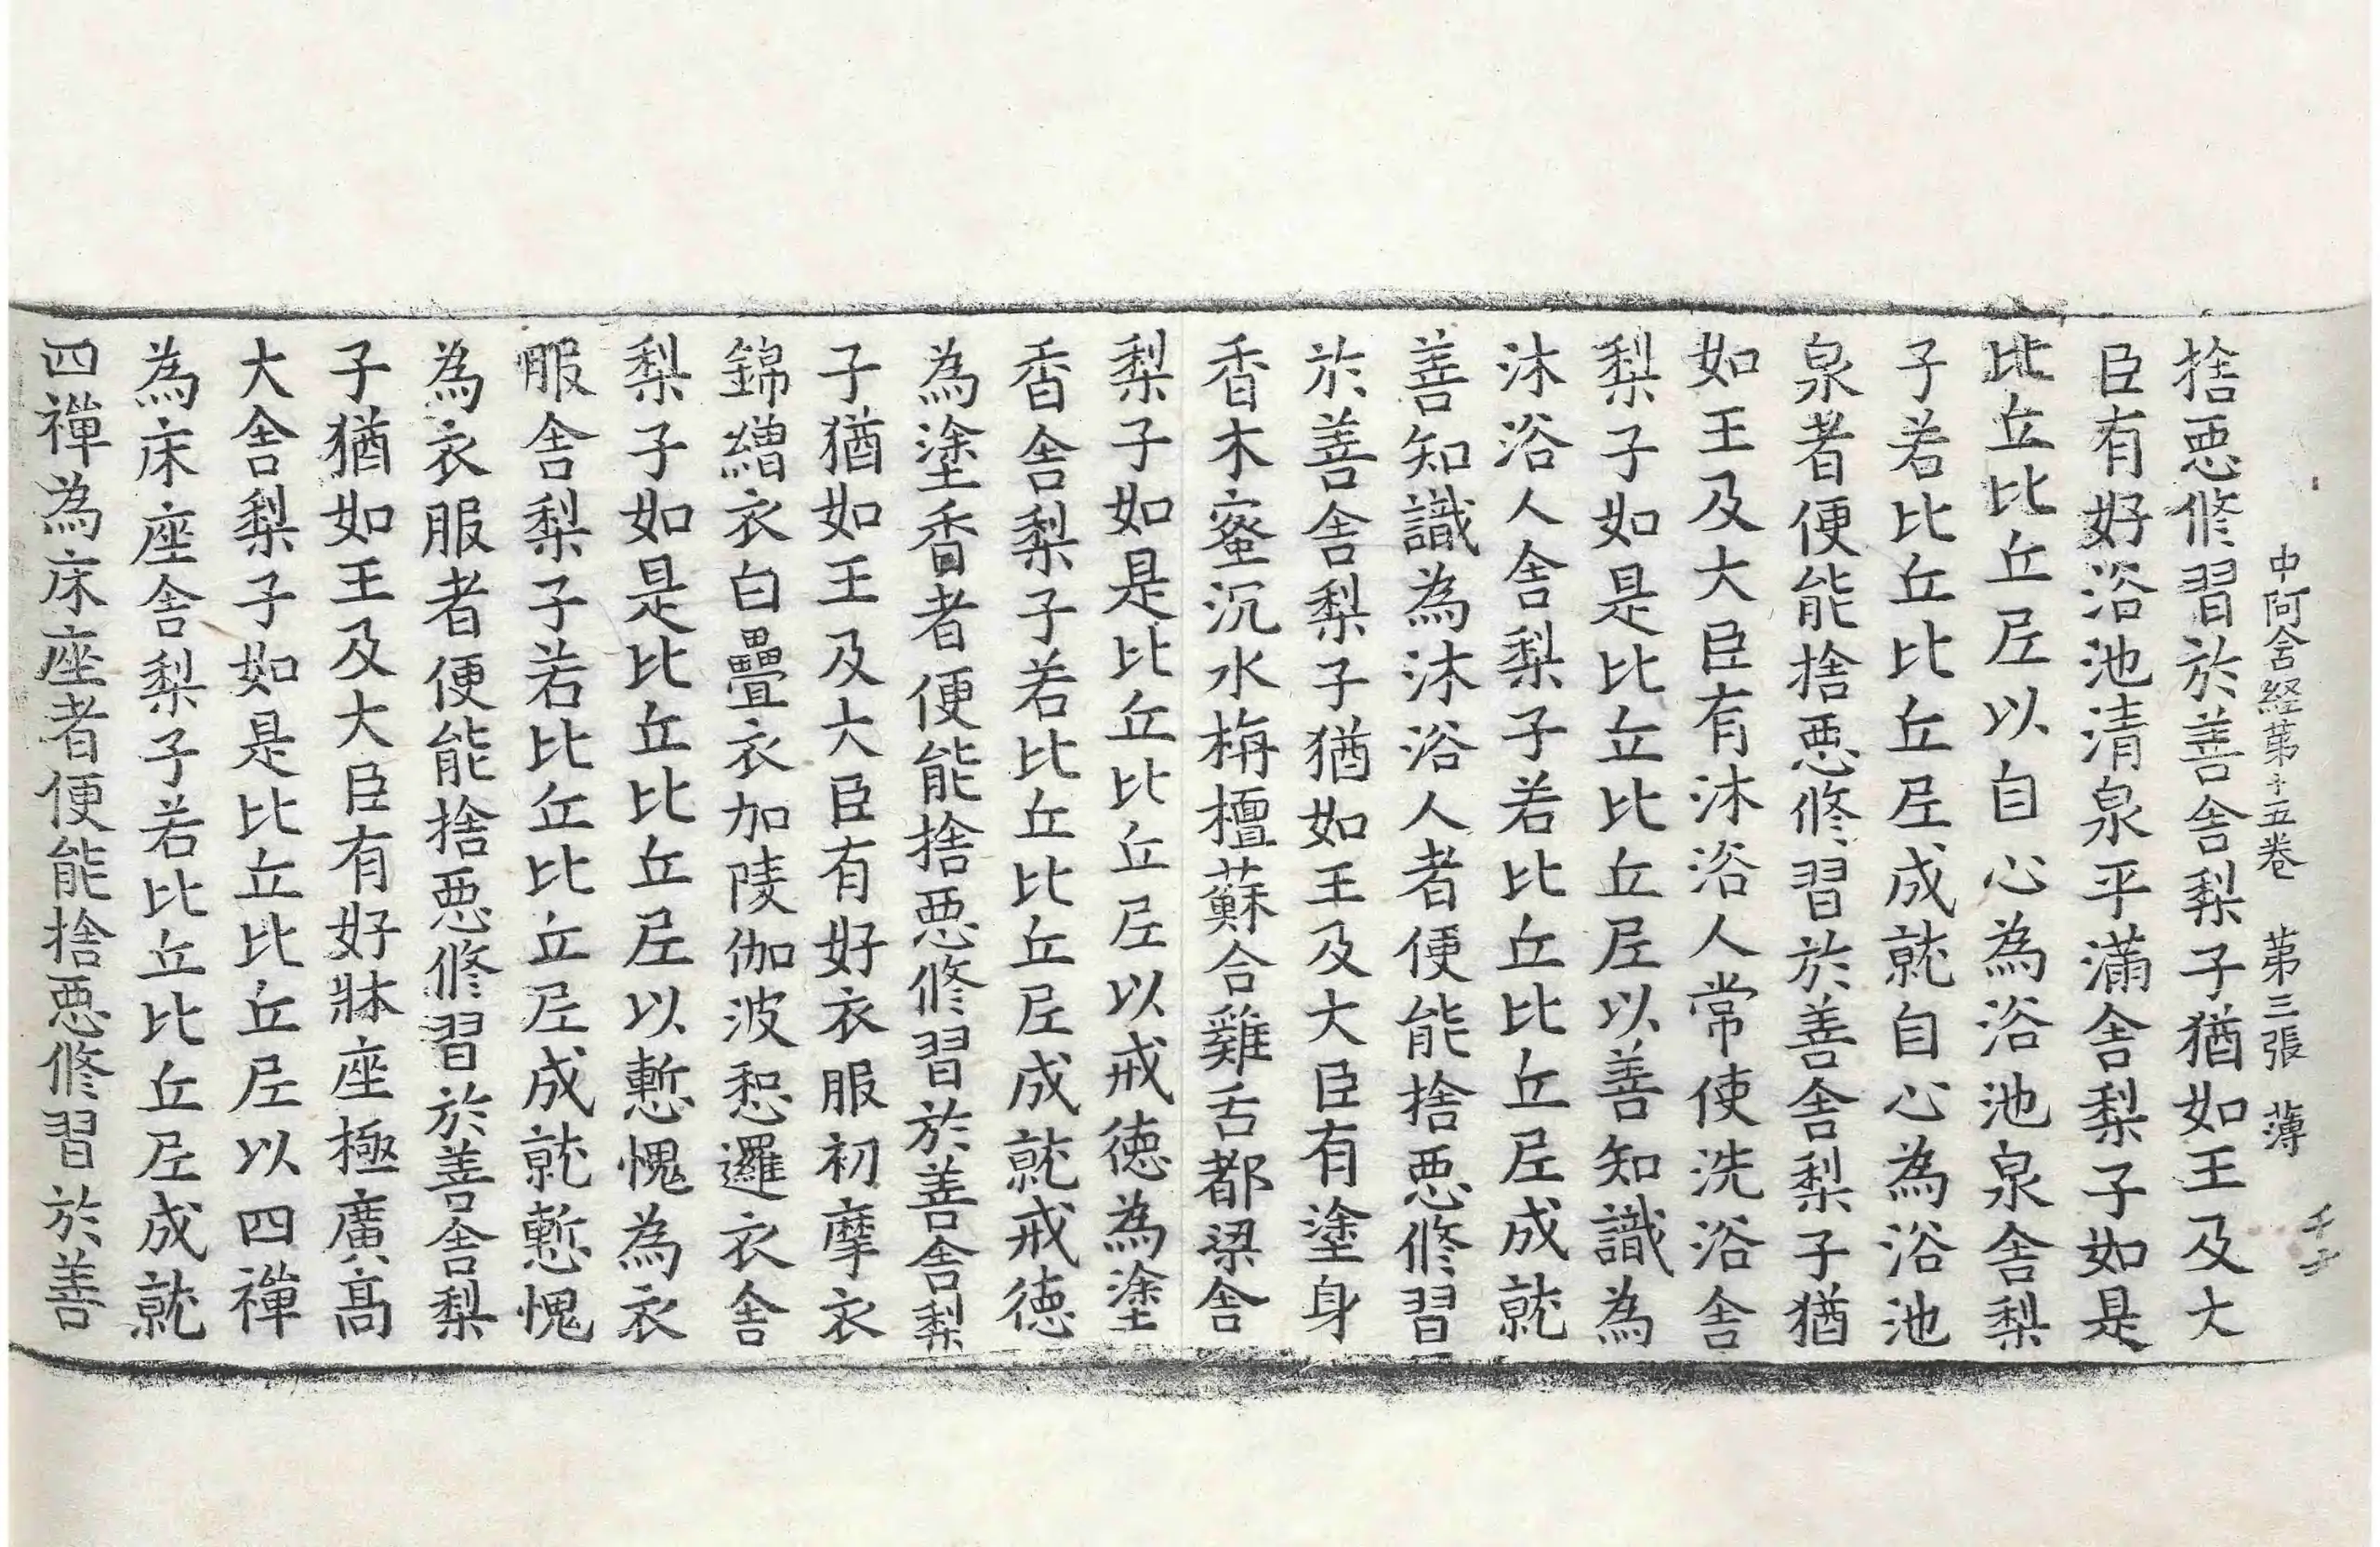 中阿含経苐十五卷 苐三張 薄
捨悪修習於善舎梨子猶如王及大
臣有好浴池清泉平滿舎梨子如是
比丘比丘𡰱以自心為浴池泉舎梨
子若比丘比丘𡰱成就自心為浴池
泉者便能捨悪修習於善舎梨子猶
如王及大臣有沐浴人常使洗浴舎
梨子如是比丘比丘𡰱以善知識為
沐浴人舎梨子若比丘比丘𡰱成就
善知識為沐浴人者便能捨悪修習
於善舎梨子猶如王及大臣有塗身
香木蜜沉水栴檀蘇合雞舌都梁舎
梨子如是比丘比丘𡰱以戒徳為塗
香舎梨子若比丘比丘𡰱成就戒徳
為塗香者便能捨悪修習於善舎梨
子猶如王及大臣有好衣服初摩衣
錦繒衣白疊衣加陵伽波惒邏衣舎
梨子如是比丘比丘𡰱以慙愧為衣
服舎梨子若比丘比丘𡰱成就慙愧
為衣服者便能捨悪修習於善舎梨
子猶如王及大臣有好牀座極廣髙
大舎梨子如是比丘比丘𡰱以四禪
為床座舎梨子若比丘比丘𡰱成就
四禪為床座者便能捨悪修習於善